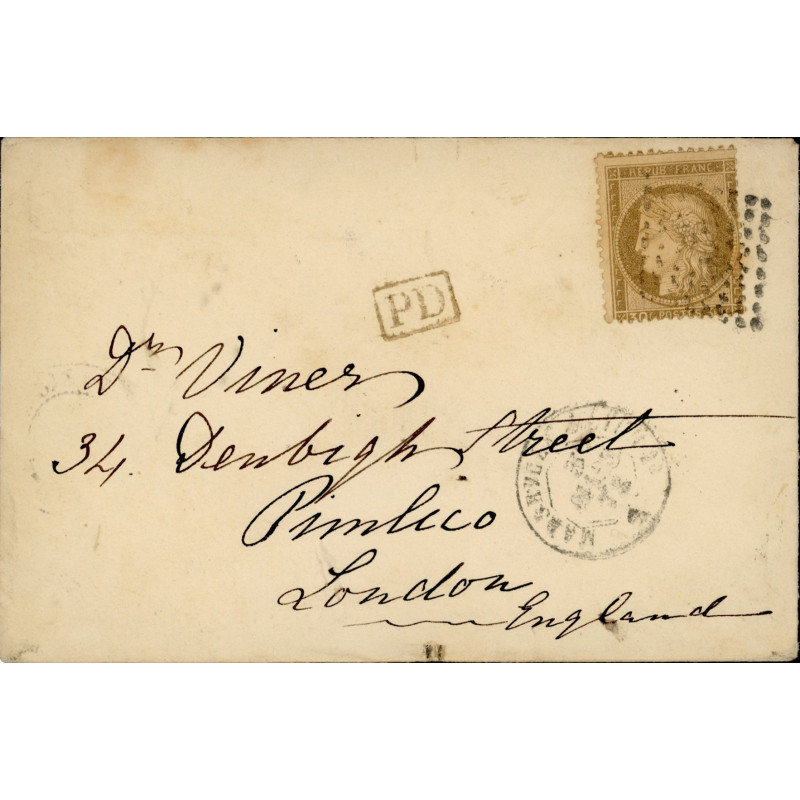 REPUB FRANC
30 C POSTES
PD
Dr Viner
34. Denbigh Street
Pimlico
London
England